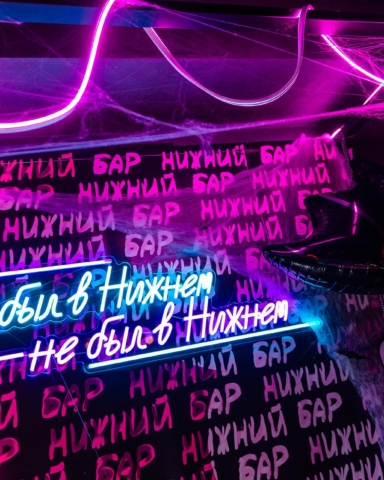 НИЖНИЙ БАР НИЖНИЙ БАР
НИЖНИЙ БАР НИЖНИЙ
НИЖНИЙ БАР НИЖНИЙ
НИЖНИЙ БАР НИЖНИЙ
БАР НИЖНИЙ
был в Нижнем
не был в Нижнем
НИЖНИЙ БАР НИЖНИЙ
БАР НИЖНИЙ БАР
НИЖНИЙ БАР НИЖНИЙ
БАР НИЖНИЙ БАР